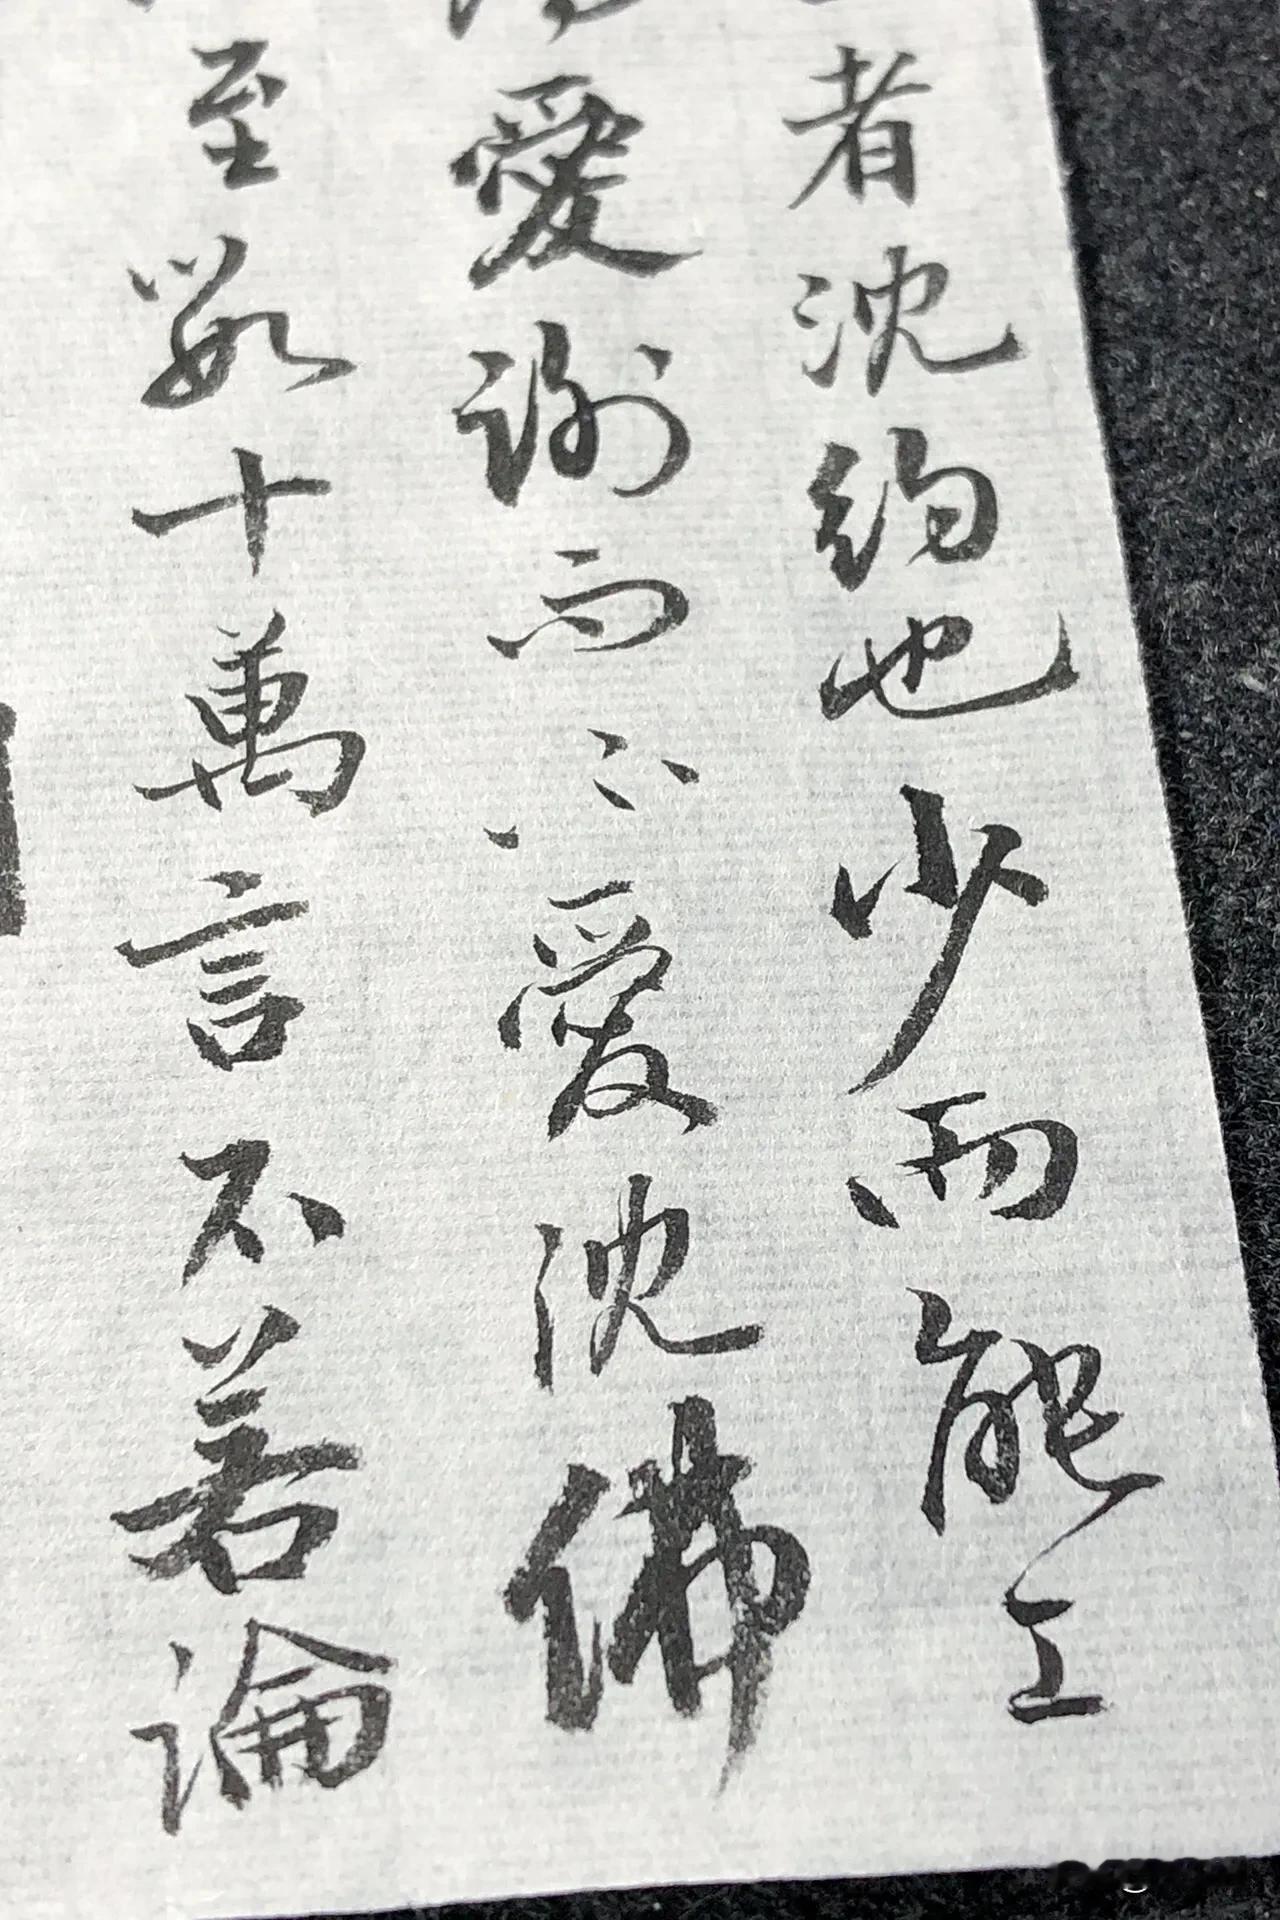 者沈約也少而能工
愛謝而不愛沈佛
至數十萬言不若論